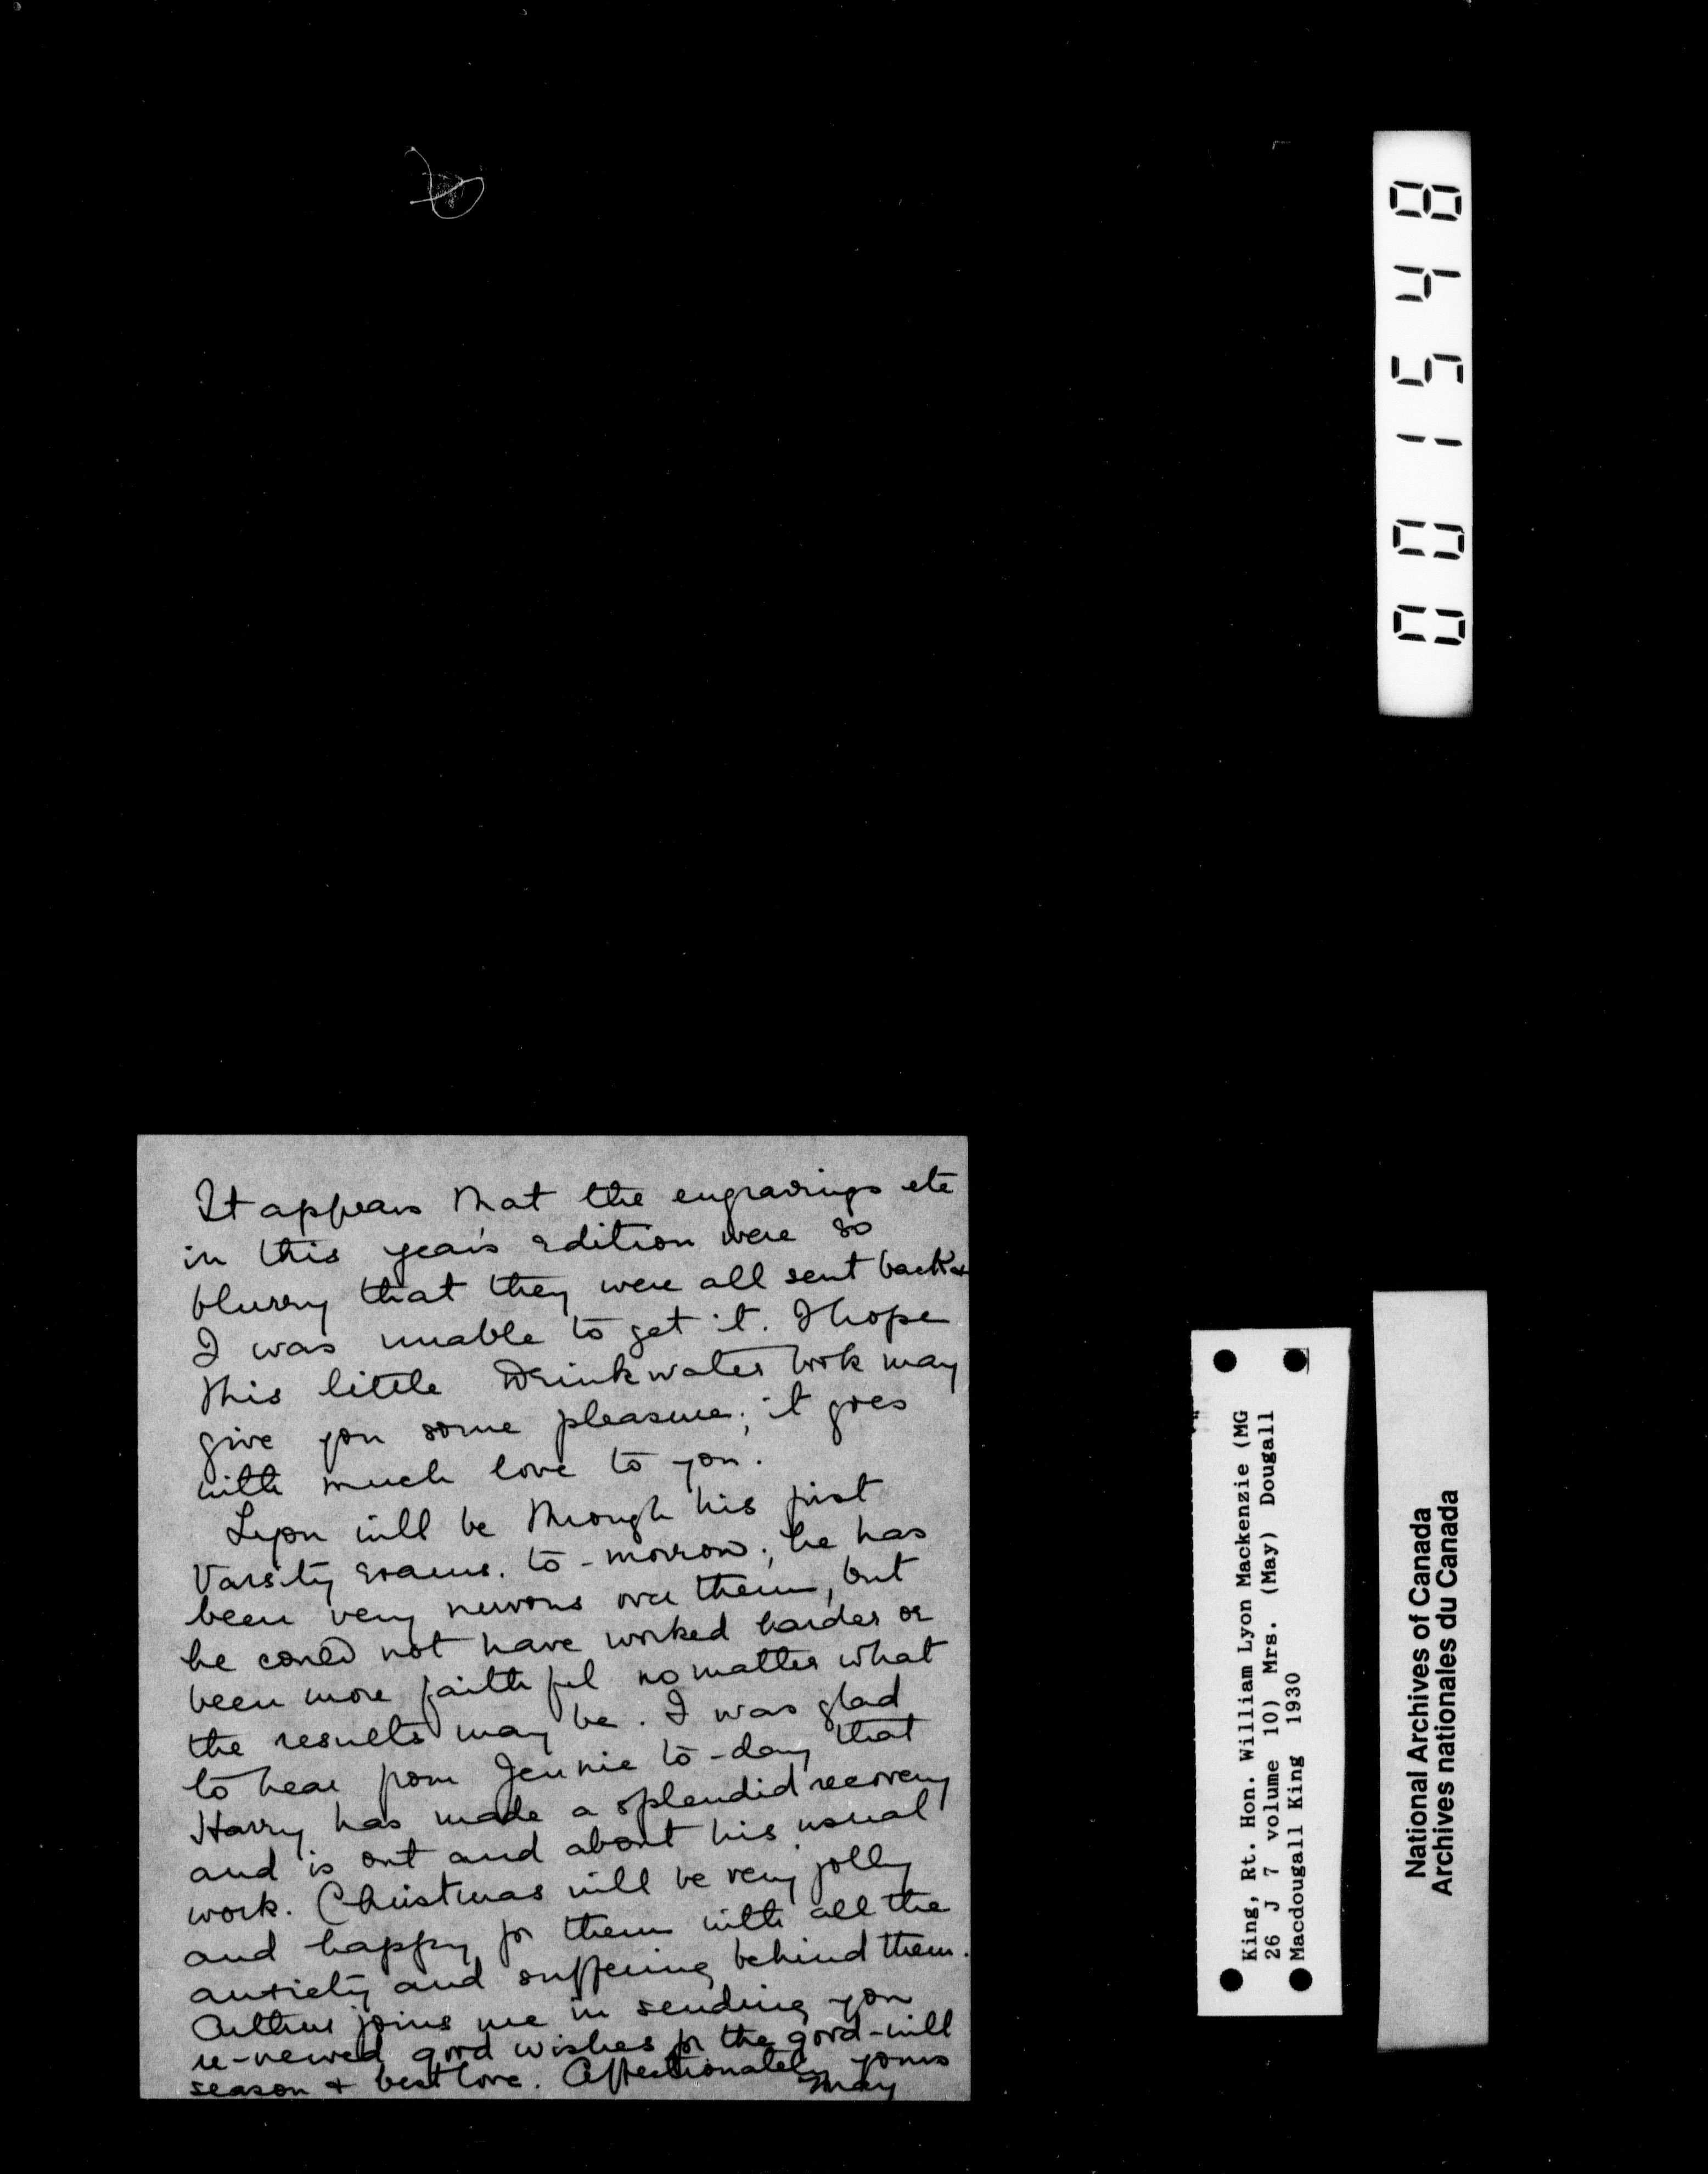 It appears that the engravings etc
in this year's edition were so
blurry that they were all sent back &
I was unable to get it. I hope
this little Drinkwater book may
give you some pleasure; it goes
with much love to you.
Lyon will be through his first
Varsity exams. to-morrow; he has
been very nervous over them, but
he could not have worked harder or
been more faithful no matter what
the results may be. I was glad
to hear from Jennie to-day that
Harry has made a splendid recovery
and is out and about his usual
work. Christmas will be very jolly
and happy for them with all the
anxiety and suffering behind them.
Arthur joins me in sending you
re-newed good wishes for the good-will
season & best love. Affectionately yours
May
001548
King, Rt. Hon. William Lyon Mackenzie (MG
26 J 7 volume 10) Mrs. (May) Dougall
Macdougall King 1930
National Archives of Canada
Archives nationales du Canada